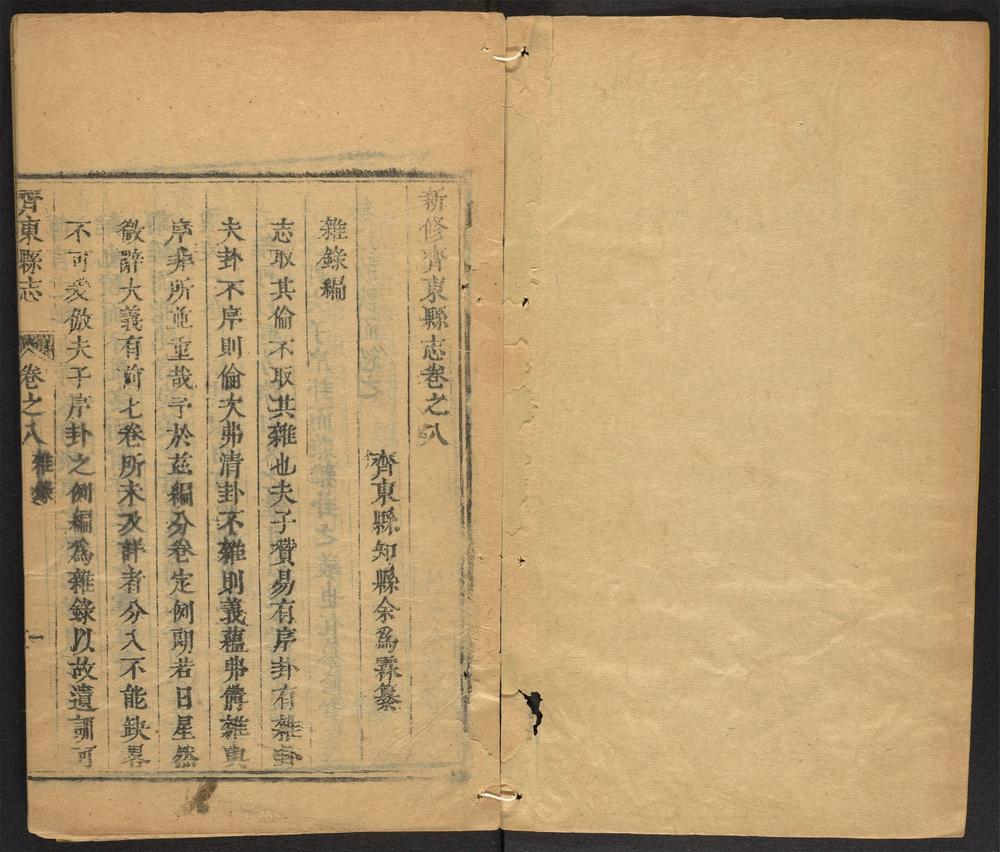 新修齊東縣志卷之八
齊東縣知縣余爲霖纂
雜錄編
志取其倫不取其雜也夫子贊易有序卦有雜卦
夫卦不序則倫次弗清卦不雜則義蘊弗備雜與
序非所並重哉予於茲編分卷定例朗若日星然
微辭大義有前七卷所未及詳者分入不能缺畧
不可爰倣夫子序卦之例編爲雜錄以故遺謌可
齊東縣志
卷之八
雜錄
一